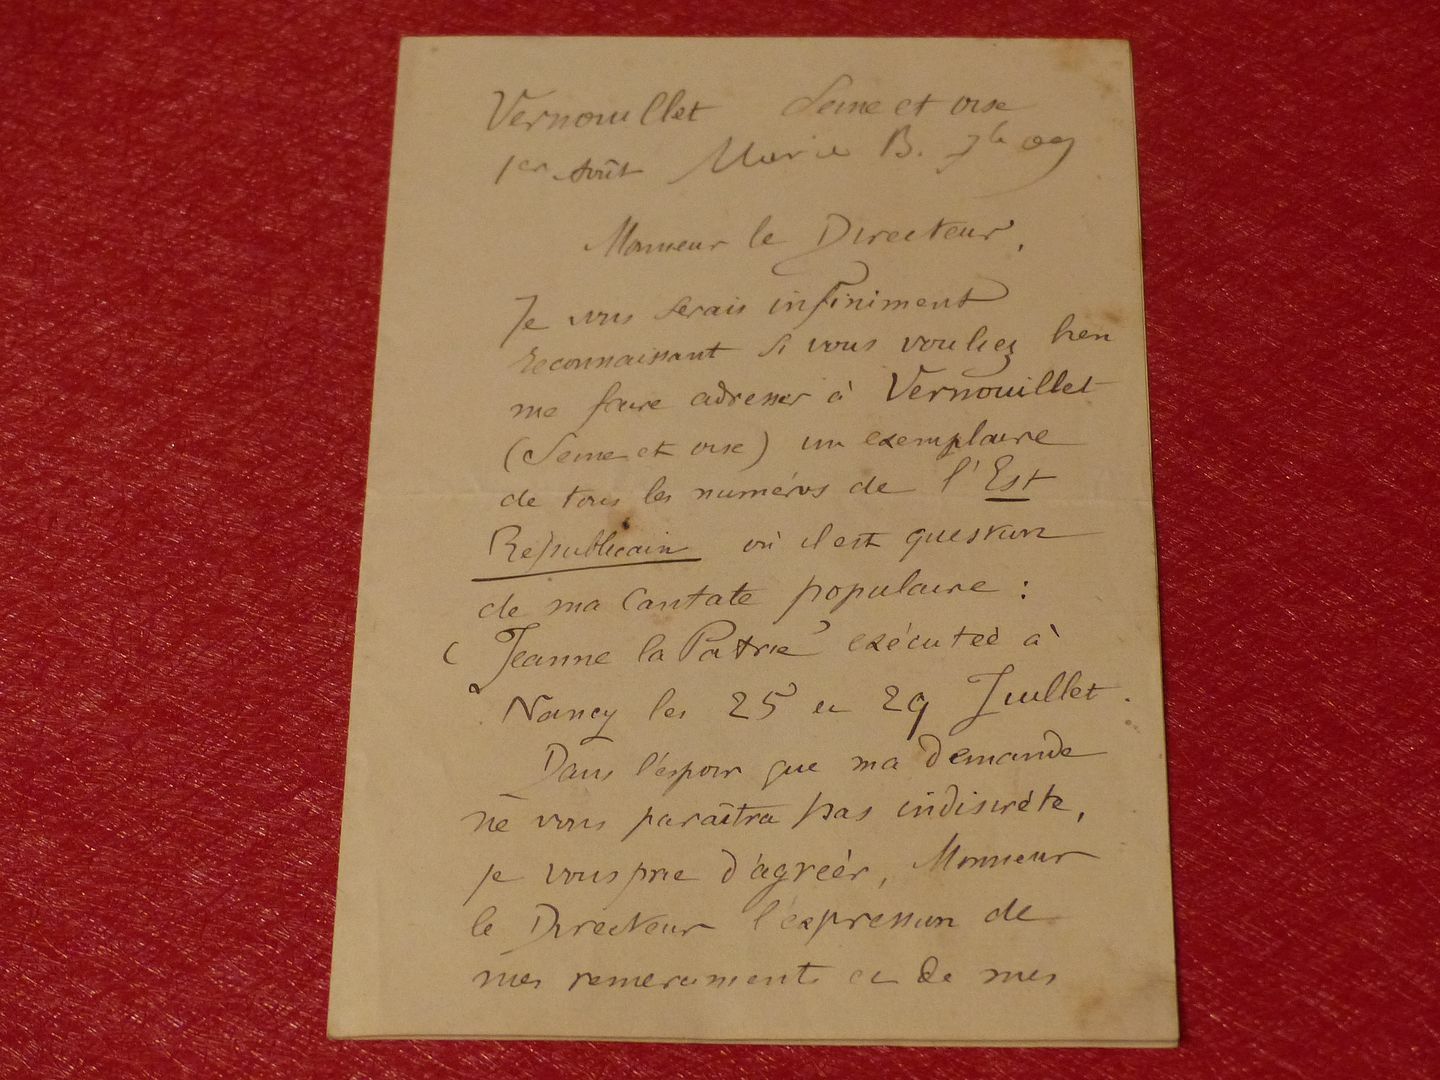 Vernouillet Seine et oise
1er Août Marie B. 7
Monsieur le Directeur,
Je vous serais infiniment
reconnaissant si vous vouliez bien
me faire adresser à Vernouillet
(Seine et oise) un exemplaire
de tous les numéros de l'Est
Républicain où il est question
de ma Cantate populaire :
Jeanne la Patrie exécutée à
Nancy les 25 et 29 Juillet.
Dans l'espoir que ma demande
ne vous paraîtra pas indiscrète,
je vous prie d'agréer, Monsieur
le Directeur l'expression de
mes remerciments et de mes